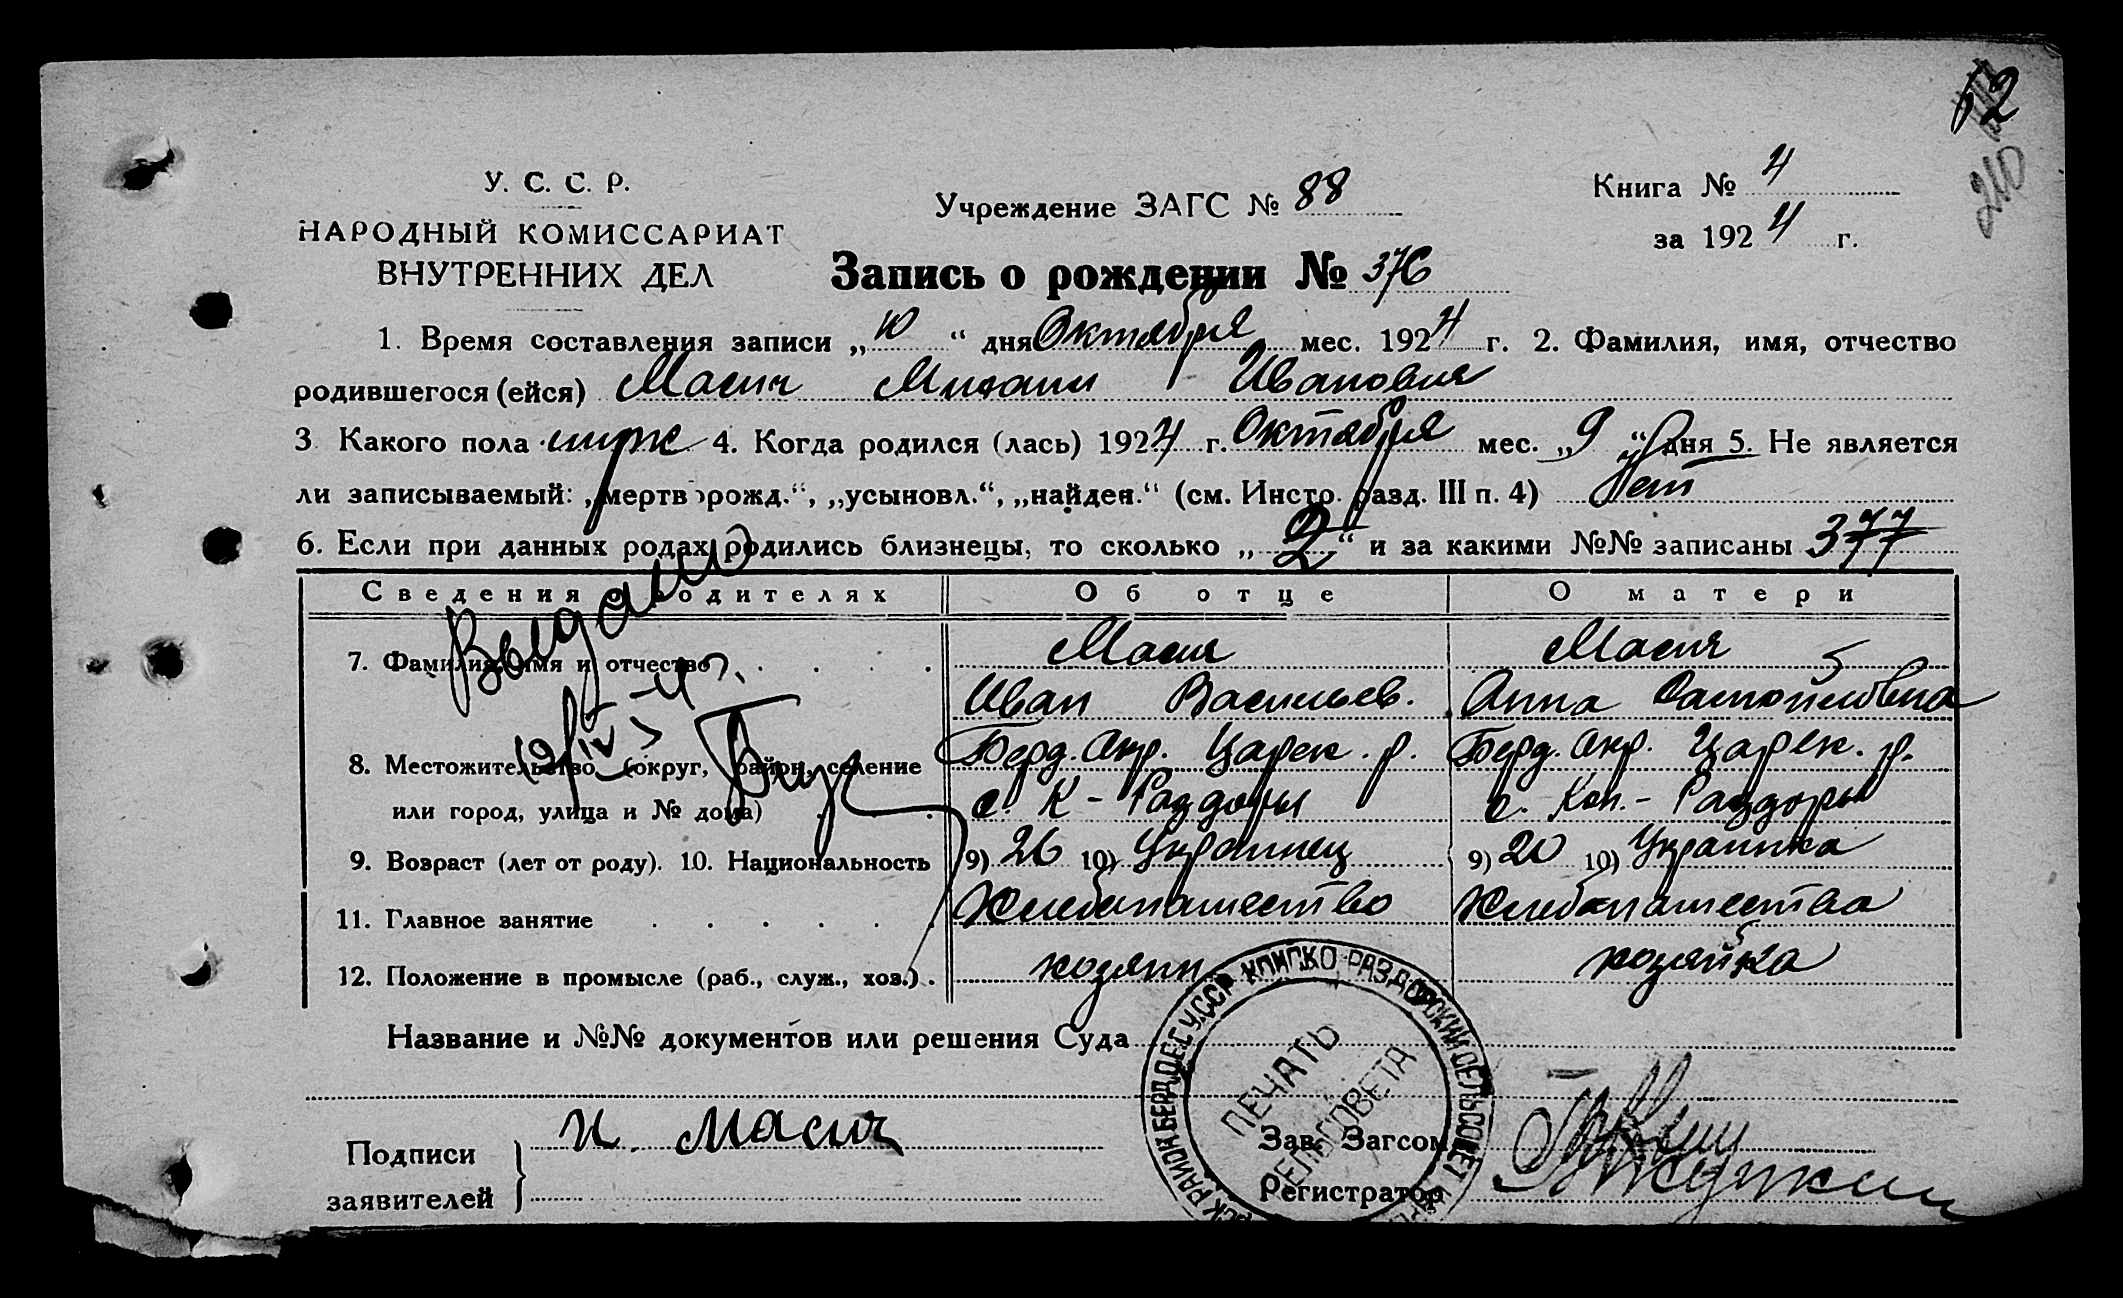 62
210
У. С. С. Р.
НАРОДНЫЙ КОМИССАРИАТ
ВНУТРЕННИХ ДЕЛ
Учреждение ЗАГС № 88
Книга № 4
за 1924 г.
Запись о рождении № 376
1. Время составления записи „10“ дня Октября мес. 1924 г. 2. Фамилия, имя, отчество
родившегося (ейся) Масич Михаил Иванович
3. Какого пола муж 4. Когда родился (лась) 1924 г. Октября мес. „9“ дня 5. Не является
ли записываемый: „мертворожд.“, „усыновл.“, „найден.“ (см. Инстр. разд. III п. 4) Нет
6. Если при данных родах родились близнецы, то сколько „2“ и за какими №№ записаны 377
Сведения о родителях Об отце О матери
7. Фамилия, имя и отчество Масич Масич
Иван Васильев. Анна
8. Местожительство (округ, район, селение Берд. Окр. Царек. р. Берд. Окр. Царек. р.
или город, улица и № дома) с. К-Раздоры с. Коп.-Раздоры
9. Возраст (лет от роду). 10. Национальность 9) 26 10) Украинец 9) 20 10) Украинка
11. Главное занятие Хлебопашество Хлебопашества
12. Положение в промысле (раб., служ., хоз.) хозяин хозяйка
Выдано
19/IV-
Название и №№ документов или решения Суда
Подписи
заявителей
И. Масич
Зав. Загсом
Регистратор
ПЕЧАТЬ
СЕЛЬСОВЕТА
РАЙОН БЕРД. УССР РАЗДОРСКИЙ СЕЛЬСОВЕТ